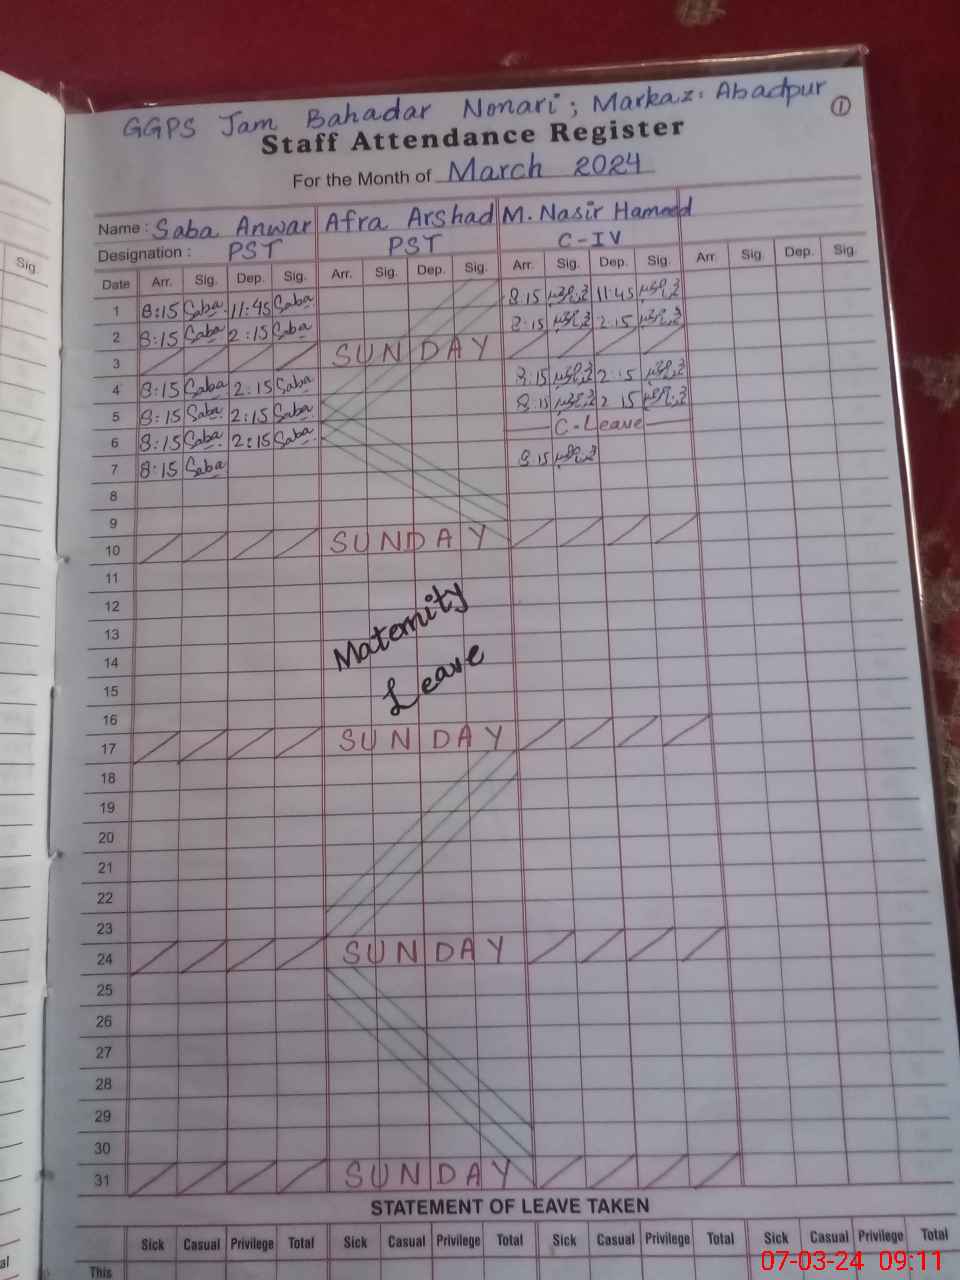 GGPS Jam Bahadar Nonari; Markaz: Abadpur ①
Staff Attendance Register
For the Month of March 2024
Sig.
Name: Saba Anwar Afra Arshad M. Nasir Hameed
Designation: PST PST C-IV
Date Arr. Sig. Dep. Sig. Arr. Sig. Dep. Sig. Arr. Sig. Dep. Sig. Arr. Sig. Dep. Sig.
1 8:15 Saba 11:45 Saba 8 15 11:45
2 8:15 Saba 2:15 Saba 8:15 2:15
3 SUNDAY
4 8:15 Saba 2:15 Saba 8:15 2:15
5 8:15 Saba 2:15 Saba 8:15 2 15
6 8:15 Saba 2:15 Saba C-Leave
7 8:15 Saba 8 15
8
9
10 SUNDAY
11
12
13
Maternity
14
15
Leave
16
17 SUNDAY
18
19
20
21
22
23
24 SUNDAY
25
26
27
28
29
30
31 SUNDAY
STATEMENT OF LEAVE TAKEN
Sick Casual Privilege Total Sick Casual Privilege Total Sick Casual Privilege Total Sick Casual Privilege Total
al This
07-03-24 09:11